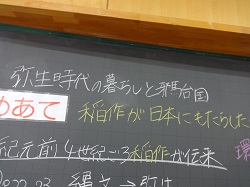 弥生時代の暮らしと邪馬台国
めあて 稲作が日本にもたらした
紀元前4世紀ごろ稲作が伝来 環
縄文→弥生